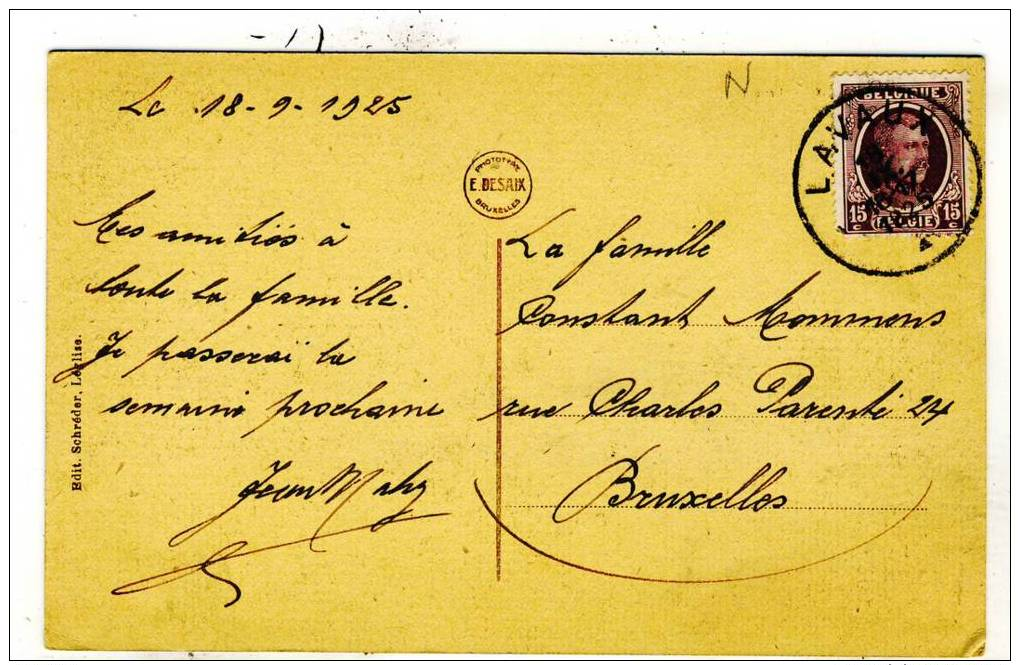 Le 18-9-1925
N
Mes amitiés à
toute la famille.
Je passerai la
semaine prochaine
Jean Mahy
PHOTOTYPIE
E. DESAIX
BRUXELLES
La famille
Constant Mommens
rue Charles Parenté 24
Bruxelles
BELGIQUE
LAVAUX
15 15
BELGIE
Edit. Schréder, Léglise.